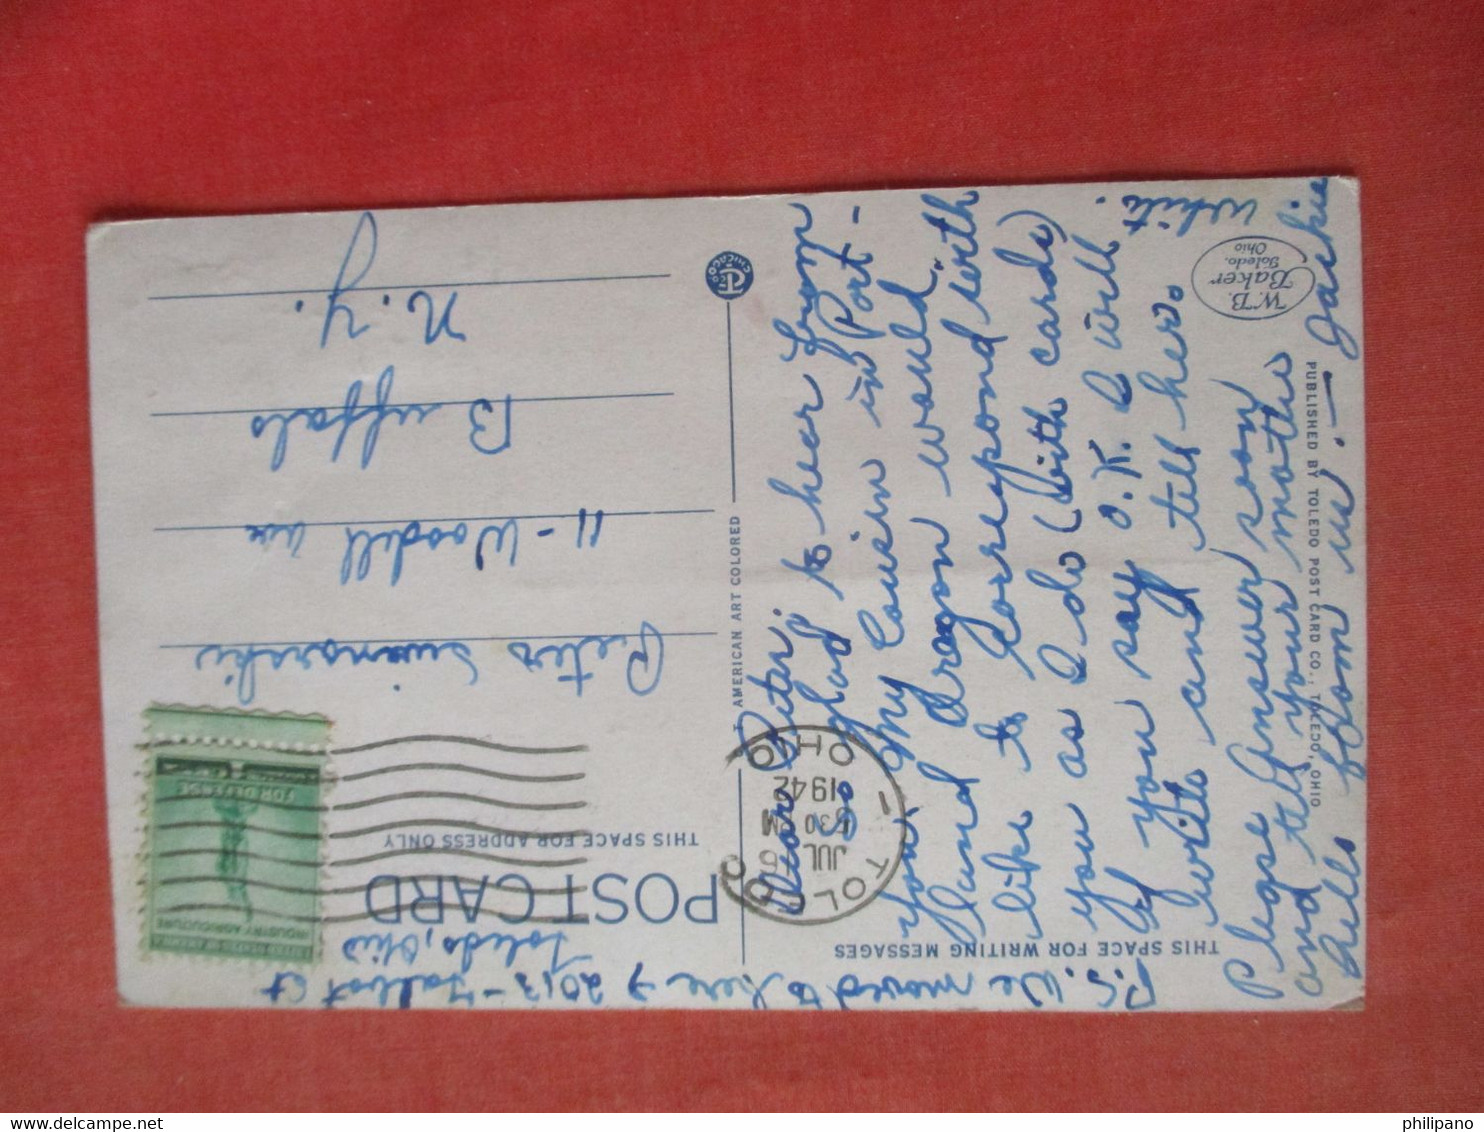 P.S. We moved to here → 2013 - Talbot St
Toledo, Ohio
THIS SPACE FOR WRITING MESSAGES
POST CARD
THIS SPACE FOR ADDRESS ONLY
Dear Peter,
So glad to hear from
you. My Cousin in Port-
land Oregon would
like to correspond with
you as I do (with cards)
If you say O.K. I will
write and tell her.
Please Answer soon
and tell your mother
hello from us! —
Jackie
White.
TOLEDO
OHIO
JUL
630 PM
1942
UNITED STATES OF AMERICA
INDUSTRY AGRICULTURE
FOR DEFENSE
11 - Woodell Ave
Buffalo
N.Y.
C.T. AMERICAN ART COLORED
CHICAGO
W.B.
Baker
Toledo,
Ohio
PUBLISHED BY TOLEDO POST CARD CO., TOLEDO, OHIO
philipano